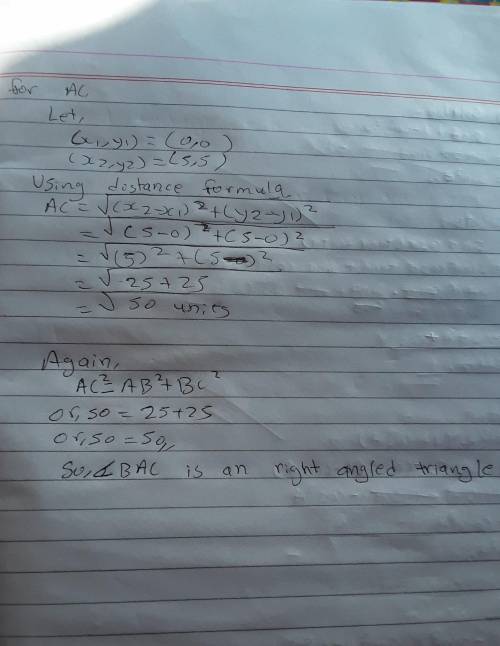 for AC
Let,
(x1,y1) = (0,0)
(x2,y2) = (5,5)
Using distance formula
AC = √(x2-x1)²+(y2-y1)²
= √(5-0)²+(5-0)²
= √(5)²+(5)²
= √25+25
= √50 units
Again,
AC² = AB²+BC²
or, 50 = 25+25
or, 50 = 50,,
So, ∆ BAC is an right angled triangle